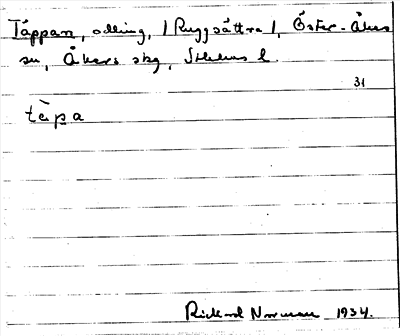 Täppan, odling, / Ruggsättra /, Öster-Åkers
sn, Åkers skg, Sthlms l.
31
tɛ̀pa
Rickard Norman 1934.